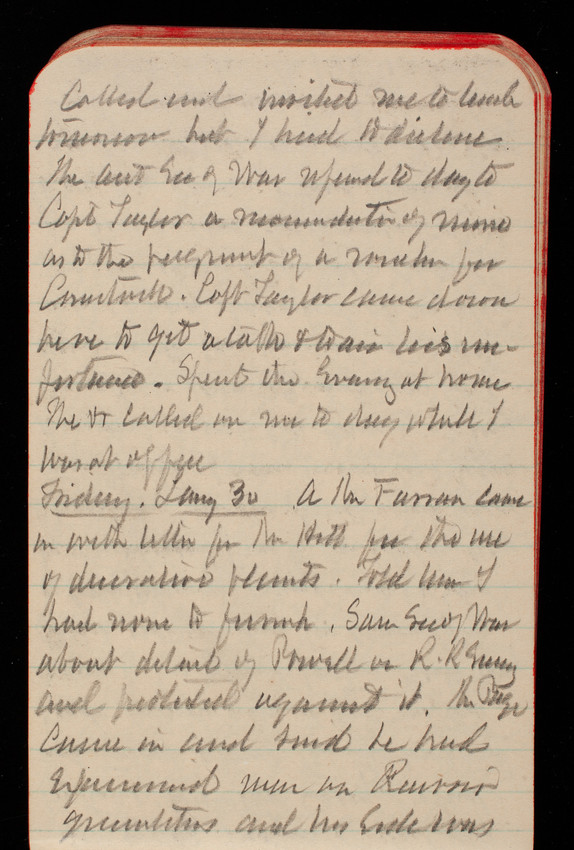 Called and invited me to lunch
tomorrow but I had to decline
The Act Sec of War refused to day to
Capt Taylor a reconsideration of mine
as to the of a for
Comstock. Capt Taylor came down
here to get a talk & to air his mis-
fortunes. Spent the Evening at home
The called on me to day while I
was at office
Friday. Jany 30 A Mr Farran came
in with letter fr Mr Hitt for the use
of decorative plants. Told him I
had none to furnish. Saw Sec of War
about detail of Powell on R.R Survey
and protested against it. Mr Page
Came in and said he had
Experienced man on
quantities and his Eride was